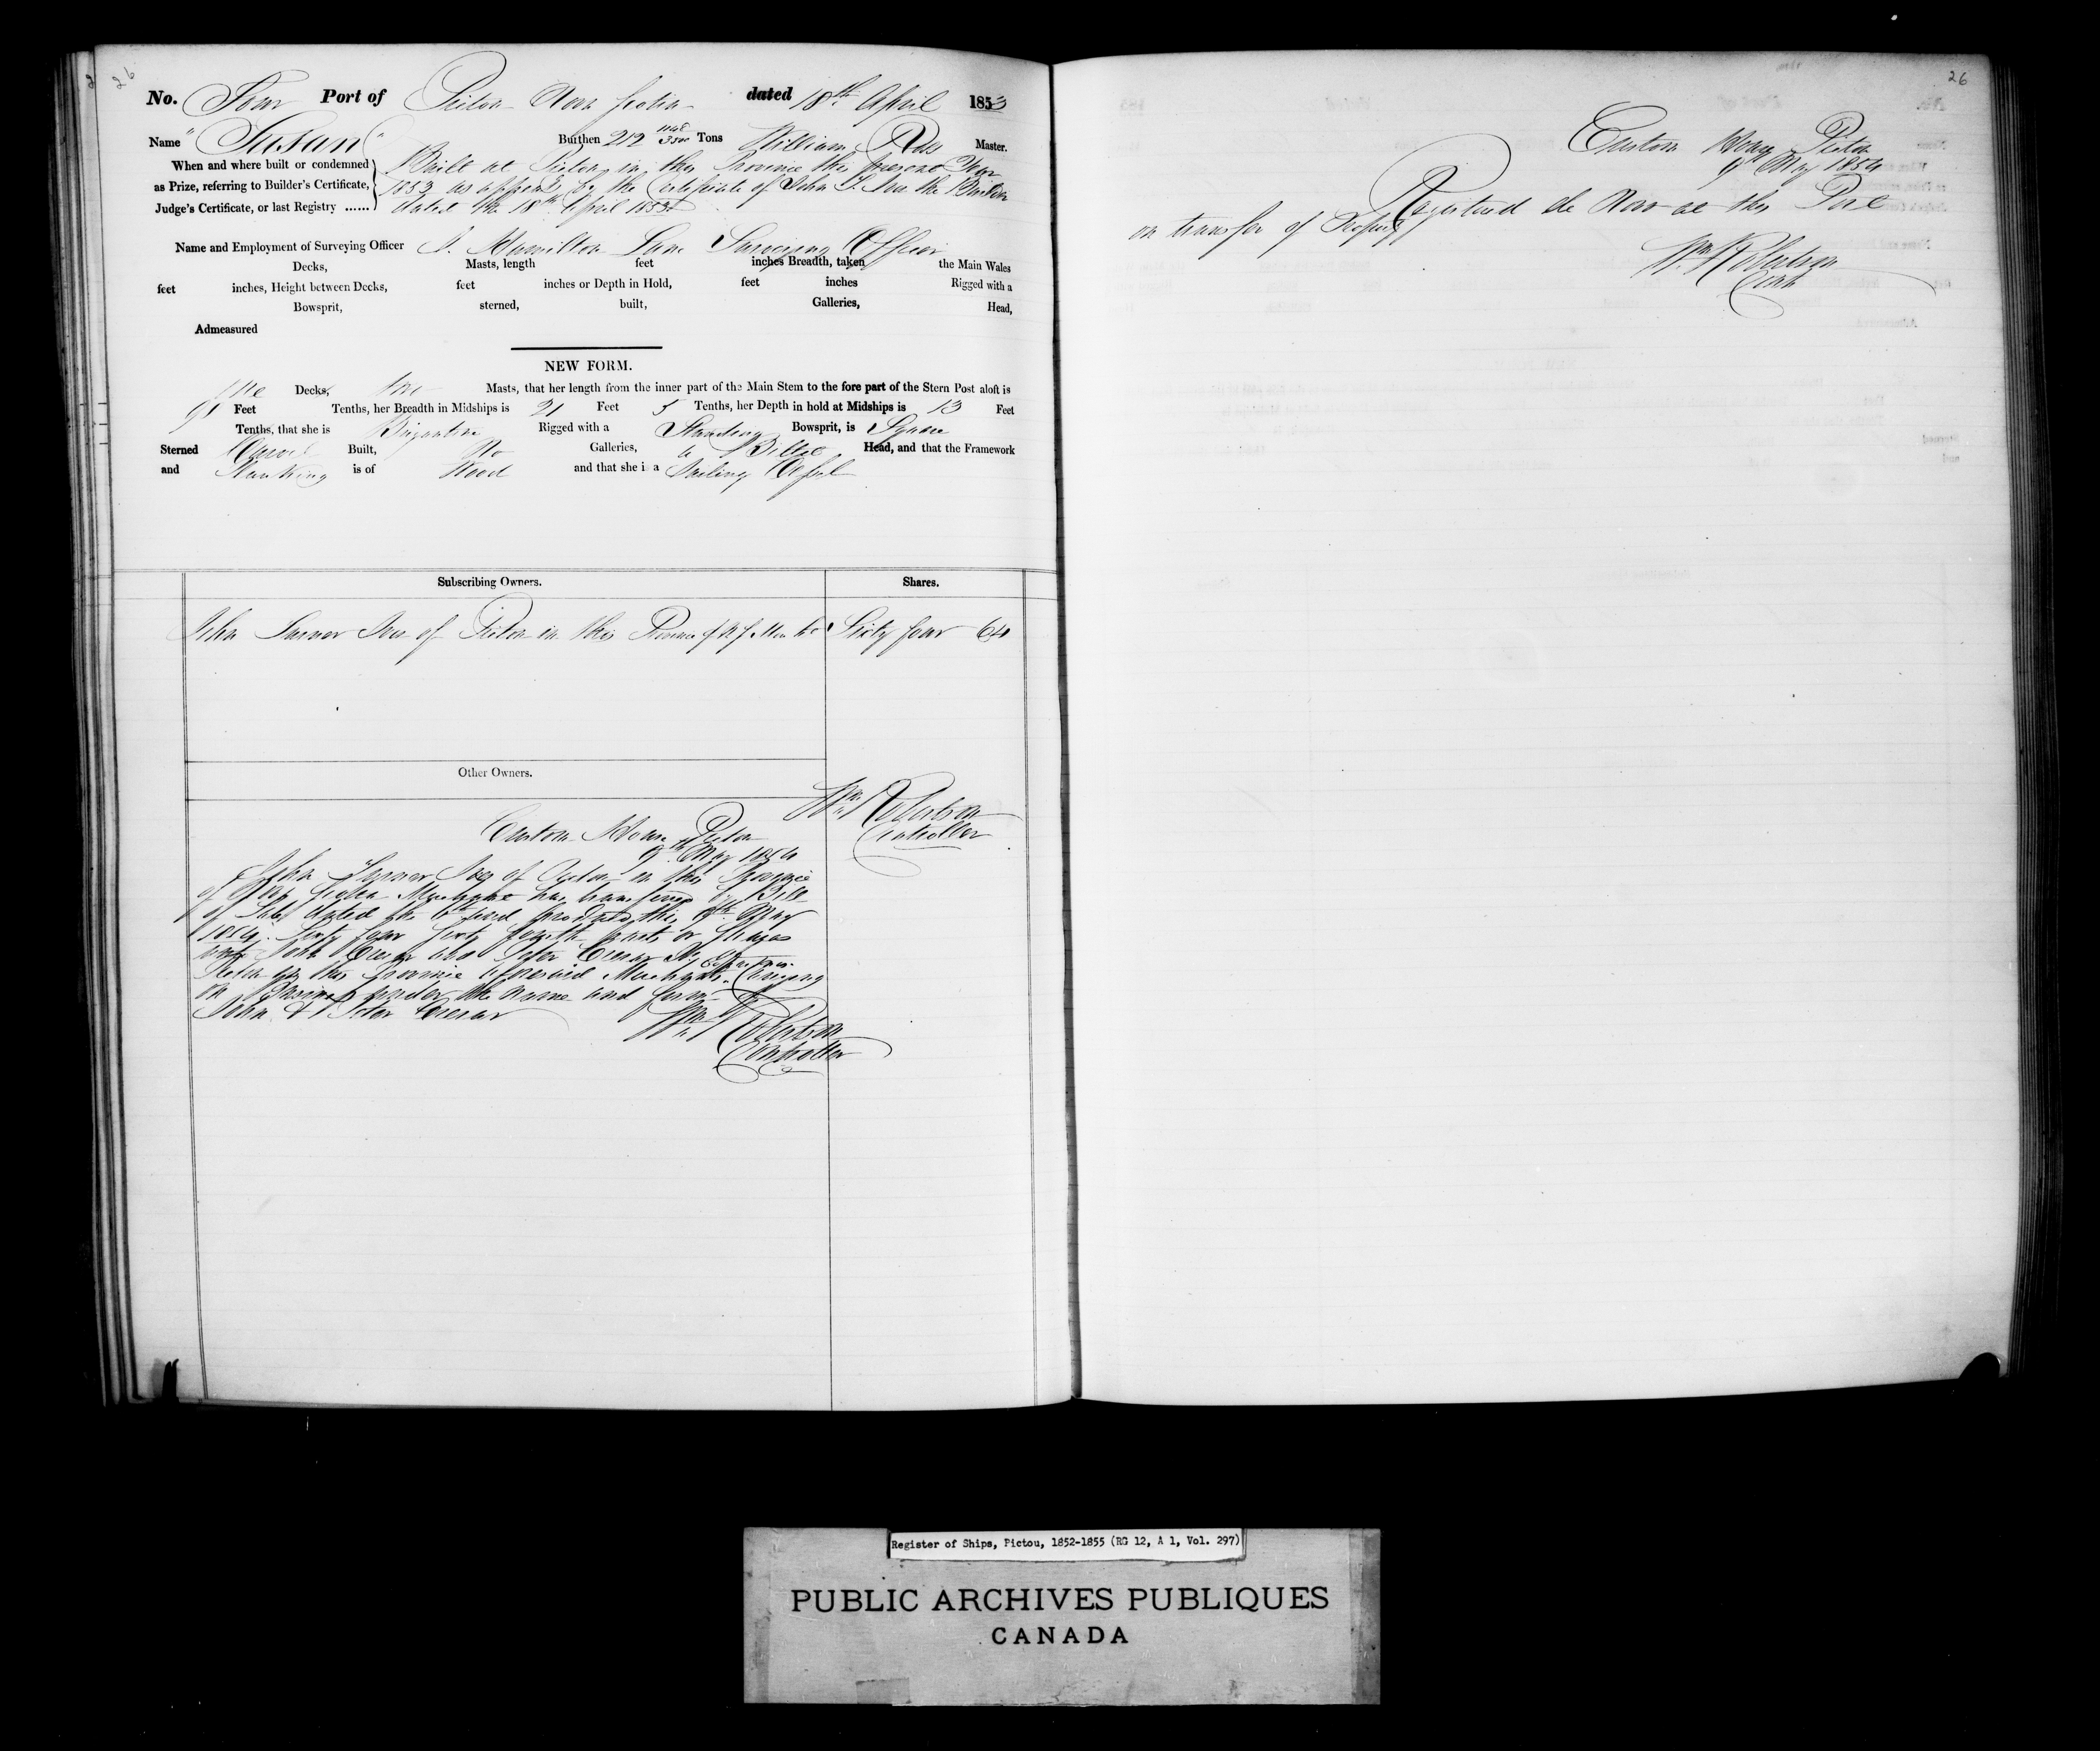 26
No. Four Port of Pictou Nova Scotia dated 18th April 1853
Name "Susan" Burthen 212 Tons William Ross Master.
When and where built or condemned
as Prize, referring to Builder's Certificate,
Judge's Certificate, or last Registry ......
Built at Pictou in this Province this present Year
1853 as appears by the Certificate of John the Builder
dated the 18th April 1853
Name and Employment of Surveying Officer Hamilton Lane Surveying Officer
Decks, Masts, length feet inches Breadth, taken the Main Wales
feet inches, Height between Decks, feet inches or Depth in Hold, feet inches Rigged with a
Bowsprit, sterned, built, Galleries, Head,
Admeasured
NEW FORM.
One Decks, two Masts, that her length from the inner part of the Main Stem to the fore part of the Stern Post aloft is
91 Feet Tenths, her Breadth in Midships is 21 Feet 5 Tenths, her Depth in hold at Midships is 13 Feet
Tenths, that she is Brigantine Rigged with a Standing Bowsprit, is Square
Sterned Carvel Built, No Galleries, a Billet Head, and that the Framework
and Planking is of Wood and that she is a Sailing Vessel
Subscribing Owners. Shares.
John of Pictou in this Province of N S Sixty four 64
Other Owners.
Wm Robertson
Controller
Custom House Pictou
9th May 1854
John of Pictou in this Province
of Nova Scotia Merchant has transferred by Bill
of Sale dated the and this 9th May
1854 Sixty four Sixty fourth parts or Shares
John and Peter
Pictou in this Province aforesaid Merchants Carrying
on Business under the name and firm of
John & Peter
Wm Robertson
Controller
26
Custom House Pictou
9th May 1854
Registered de Novo at this Port
on transfer of Property
Wm Robertson
Register of Ships, Pictou, 1852-1855 (RG 12, A 1, Vol. 297)
PUBLIC ARCHIVES PUBLIQUES
CANADA